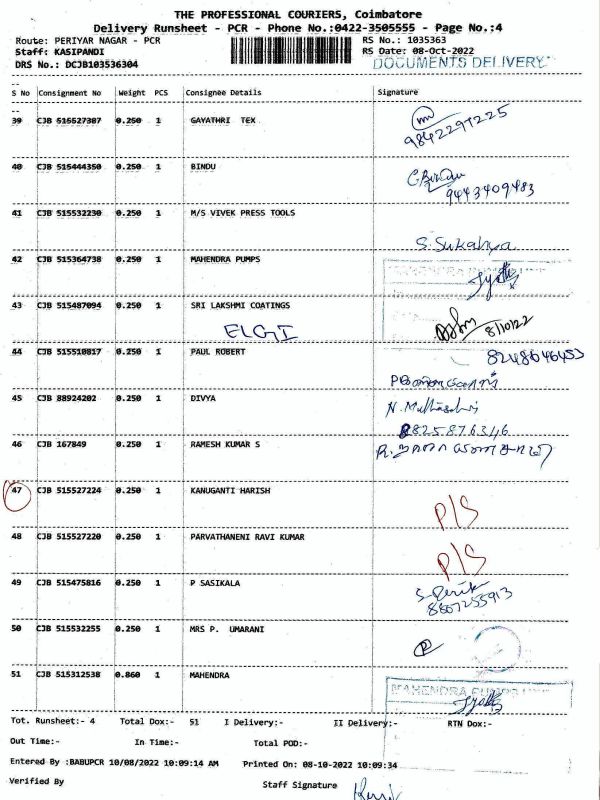 THE PROFESSIONAL COURIERS, Coimbatore
Delivery Runsheet - PCR - Phone No.:0422-3505555 - Page No.:4
Route: PERIYAR NAGAR - PCR RS No.: 1035363
Staff: KASIPANDI RS Date: 08-Oct-2022
DRS No.: DCJB103536304 DOCUMENTS DELIVERY
S No Consignment No Weight PCS Consignee Details Signature
39 CJB 515527387 0.250 1 GAYATHRI TEX
9842297225
40 CJB 515444350 0.250 1 BINDU
9443409483
41 CJB 515532230 0.250 1 M/S VIVEK PRESS TOOLS
S. Sukanya
42 CJB 515364738 0.250 1 MAHENDRA PUMPS
MAHENDRA PUMPS
43 CJB 515487094 0.250 1 SRI LAKSHMI COATINGS
ELGI 8/10/22
44 CJB 515510817 0.250 1 PAUL ROBERT 8248646453
45 CJB 88924202 0.250 1 DIVYA
8825876346
46 CJB 167849 0.250 1 RAMESH KUMAR S
47 CJB 515527224 0.250 1 KANUGANTI HARISH
P/S
48 CJB 515527220 0.250 1 PARVATHANENI RAVI KUMAR
P/S
49 CJB 515475816 0.250 1 P SASIKALA
8807255913
50 CJB 515532255 0.250 1 MRS P. UMARANI
51 CJB 515312538 0.860 1 MAHENDRA
MAHENDRA PUMPS
Tot. Runsheet:- 4 Total Dox:- 51 I Delivery:- II Delivery:- RTN Dox:-
Out Time:- In Time:- Total POD:-
Entered By :BABUPCR 10/08/2022 10:09:14 AM Printed On: 08-10-2022 10:09:34
Verified By Staff Signature